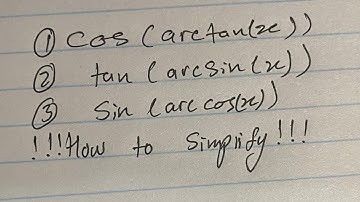 ① cos (arctan(x))
② tan (arcsin(x))
③ sin (arccos(x))
!!!How to simplify!!!